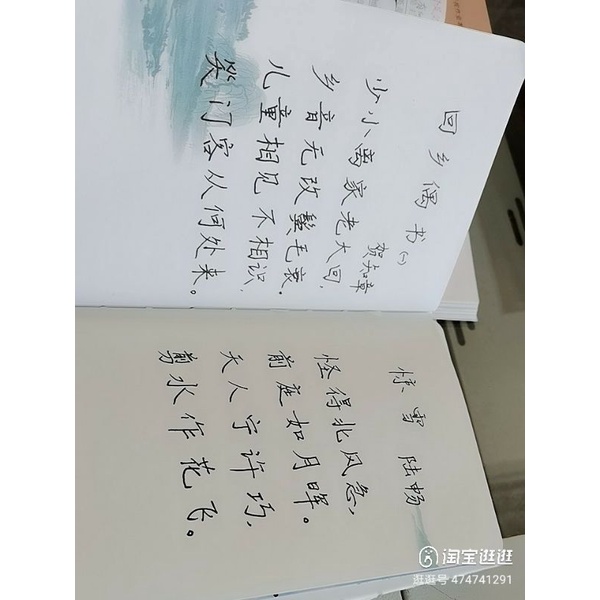 回乡偶书(一)
贺知章
少小离家老大回,
乡音无改鬓毛衰.
儿童相见不相识,
笑问客从何处来。
惊雪 陆畅
怪得北风急,
前庭如月晖。
天人宁许巧,
剪水作花飞。
淘宝逛逛
逛逛号 474741291